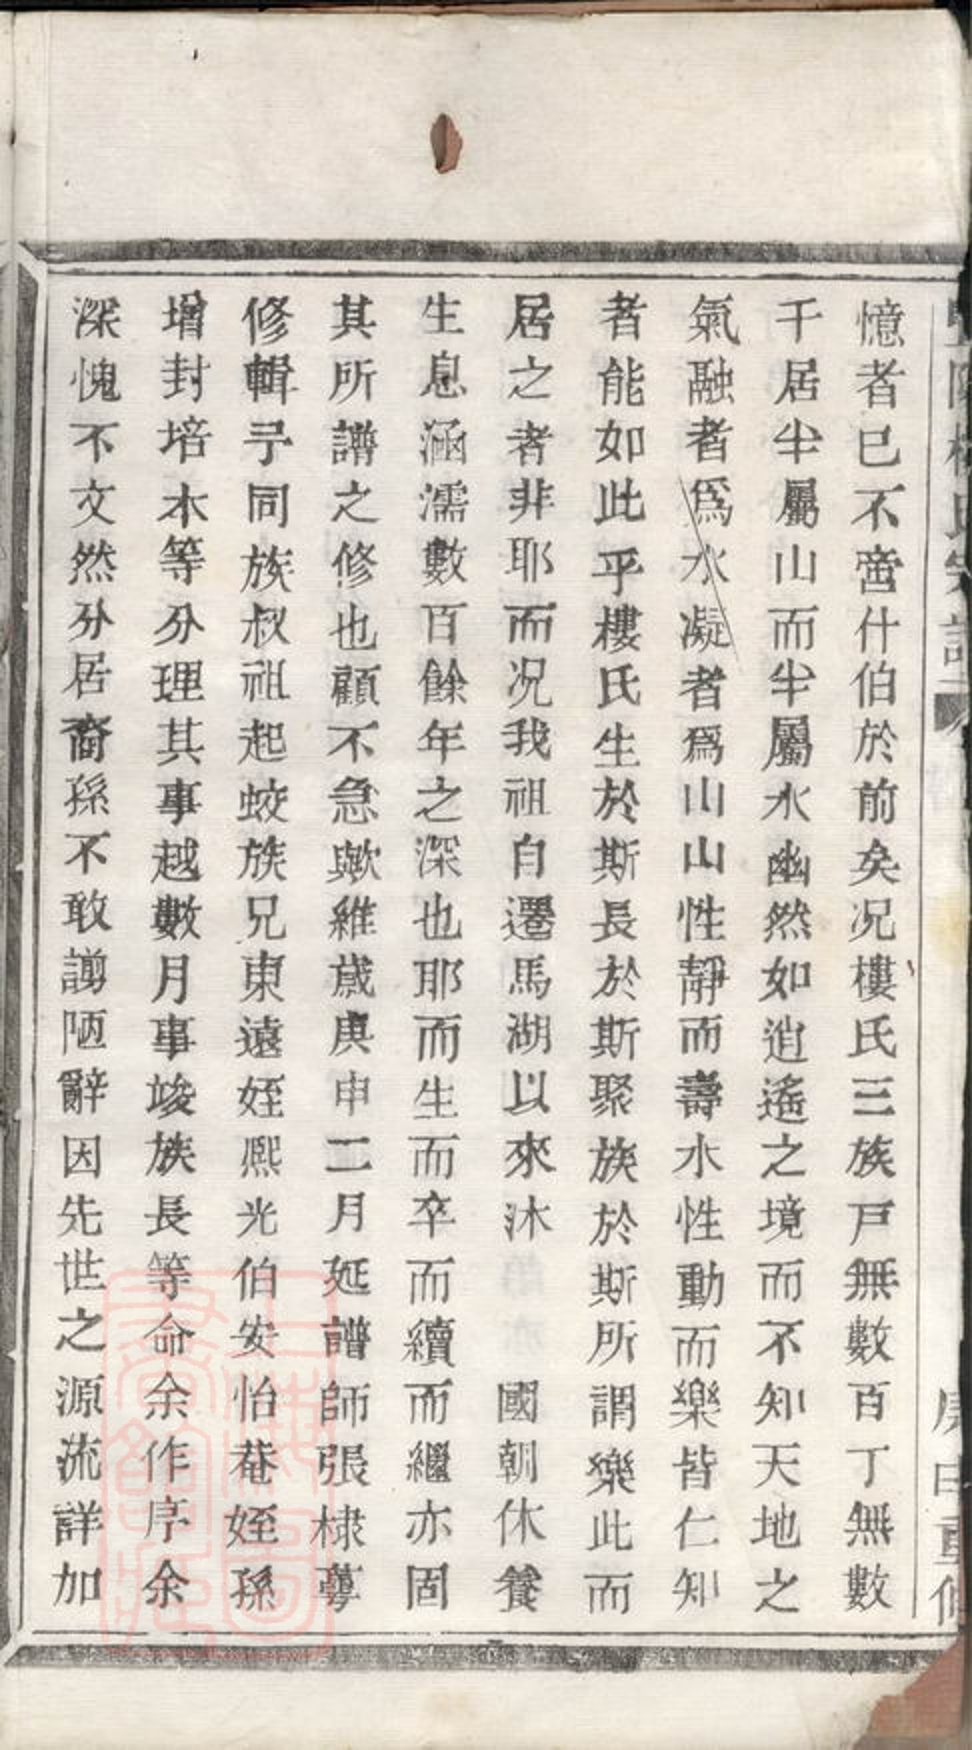 憶者已不啻什伯於前矣况樓氏三族戸無數百丁無數
千居半屬山而半屬水幽然如逍遙之境而不知天地之
氣融者爲水凝者爲山山性靜而壽水性動而樂皆仁知
者能如此乎樓氏生於斯長於斯聚族於斯所謂樂此而
居之者非耶而况我祖自遷馬湖以來沐 國朝休養
生息涵濡數百餘年之深也耶而生而卒而續而繼亦固
其所譜之修也顧不急歟維歲庚申二月延譜師張棣蕚
修輯予同族叔祖起蛟族兄東遠姪熙光伯安怡菴姪孫
增封培木等分理其事越數月事竣族長等命余作序余
深愧不文然分居裔孫不敢謭陋辭因先世之源流詳加